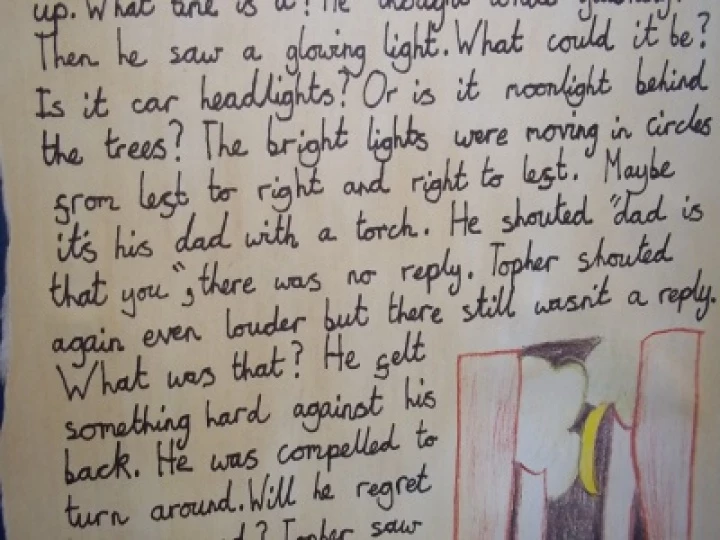 up. What time is it? He thought while
Then he saw a glowing light. What could it be?
Is it car headlights? Or is it moonlight behind
the trees? The bright lights were moving in circles
from left to right and right to left. Maybe
it's his dad with a torch. He shouted "dad is
that you", there was no reply. Topher shouted
again even louder but there still wasn't a reply.
What was that? He felt
something hard against his
back. He was compelled to
turn around. Will he regret
? Topher saw